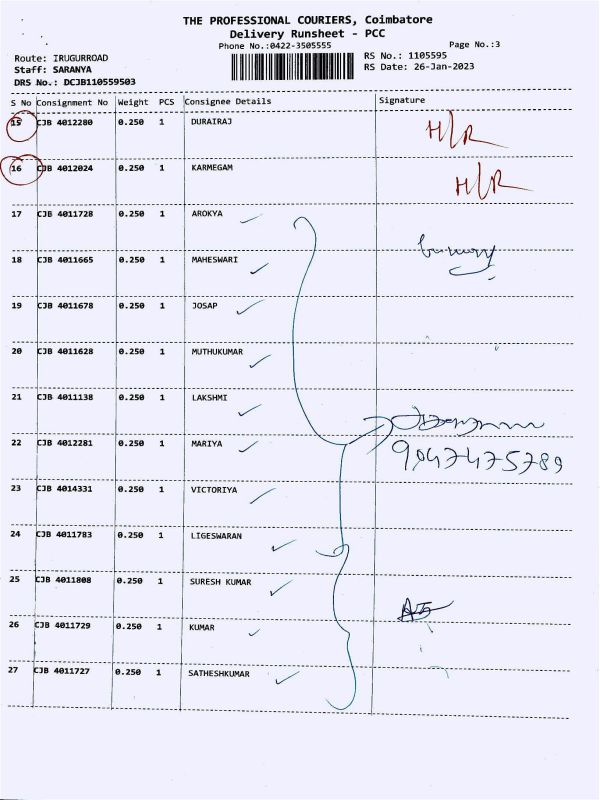 THE PROFESSIONAL COURIERS, Coimbatore
Delivery Runsheet - PCC
Phone No.:0422-3505555
Page No.:3
Route: IRUGURROAD
RS No.: 1105595
Staff: SARANYA
RS Date: 26-Jan-2023
DRS No.: DCJB110559503
S No Consignment No Weight PCS Consignee Details Signature
15 CJB 4012280 0.250 1 DURAIRAJ H/R
16 CJB 4012024 0.250 1 KARMEGAM H/R
17 CJB 4011728 0.250 1 AROKYA
18 CJB 4011665 0.250 1 MAHESWARI
19 CJB 4011678 0.250 1 JOSAP
20 CJB 4011628 0.250 1 MUTHUKUMAR
21 CJB 4011138 0.250 1 LAKSHMI
22 CJB 4012281 0.250 1 MARIYA 9047475789
23 CJB 4014331 0.250 1 VICTORIYA
24 CJB 4011783 0.250 1 LIGESWARAN
25 CJB 4011808 0.250 1 SURESH KUMAR
26 CJB 4011729 0.250 1 KUMAR
27 CJB 4011727 0.250 1 SATHESHKUMAR